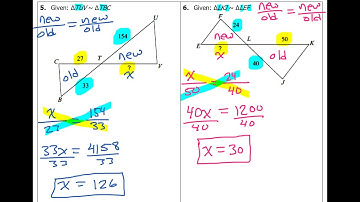 5. Given: ΔTUV ~ ΔTBC
new/old = new/old
U
154
C
27
T
new
?
x
V
old
33
B
x/27 = 154/33
33x/33 = 4158/33
x = 126
6. Given: ΔLKJ ~ ΔLEF
new/old = new/old
F
24
50
E
L
K
new
?
x
old
40
J
x/50 = 24/40
40x/40 = 1200/40
x = 30